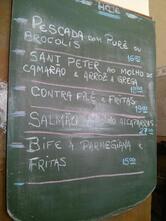 HOJE
PESCADA COM PURÊ OU
BROCOLIS
SANT PETER AO MOLHO DE
CAMARÃO E ARROZ A GREGA
CONTRA FILÉ E FRITAS
SALMÃO AO ALCAPARRAS
BIFE À PARMEGIANA E
FRITAS